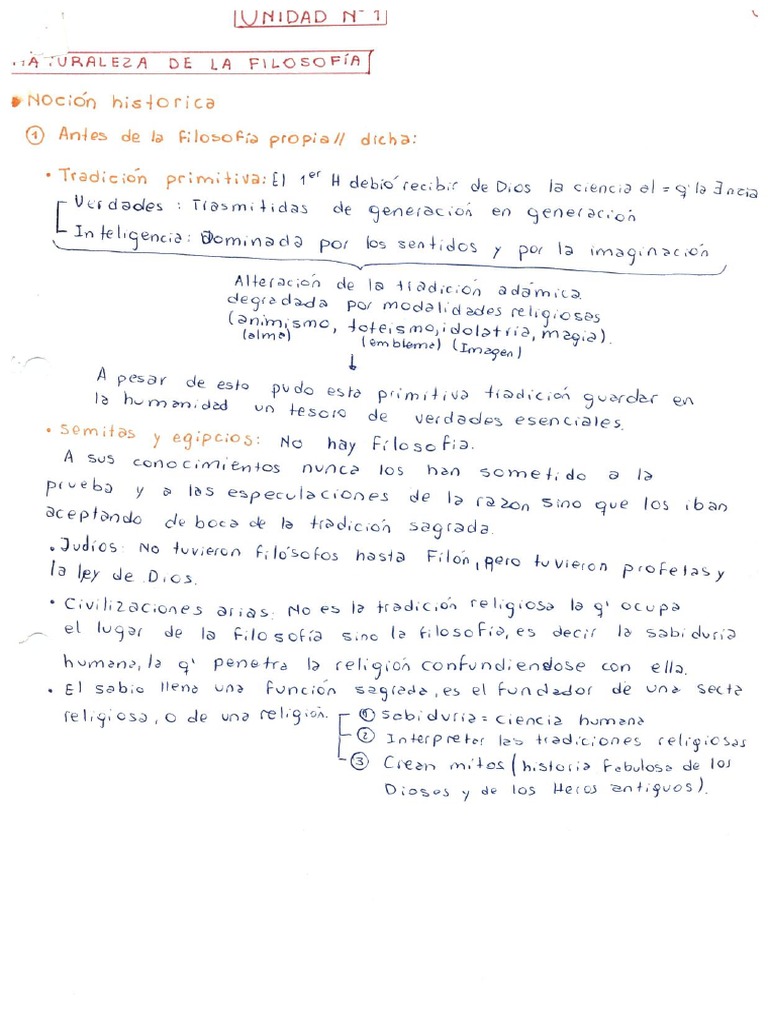 UNIDAD Nº 1
NATURALEZA DE LA FILOSOFÍA
Noción historica
① Antes de la filosofía propia// dicha:
• Tradición primitiva: El 1er H debió recibir de Dios la ciencia al = q' la ∃ncia
Verdades : Trasmitidas de generación en generación
Inteligencia: Dominada por los sentidos y por la imaginación
Alteración de la tradición adámica
degradada por modalidades religiosas
(animismo, toteismo, idolatria, magia).
(alma) (embleme) (Imagen)
↓
A pesar de esto pudo esta primitiva tradición guardar en
la humanidad un tesoro de verdades esenciales.
• Semitas y egipcios: No hay filosofia.
A sus conocimientos nunca los han sometido a la
prueba y a las especulaciones de la razon sino que los iban
aceptando de boca de la tradición sagrada.
• Judios: No tuvieron filósofos hasta Filón, pero tuvieron profetas y
la ley de Dios.
• Civilizaciones arias: No es la tradición religiosa la q' ocupa
el lugar de la filosofía sino la filosofía, es decir la sabiduria
humana, la q' penetra la religión confundiendose con ella.
• El sabio llena una función sagrada, es el fundador de una secta
religiosa, o de una religión. ① Sabiduria = ciencia humana
② Interpretar las tradiciones religiosas
③ Crean mitos (historia fabulosa de los
Dioses y de los Heros antiguos).